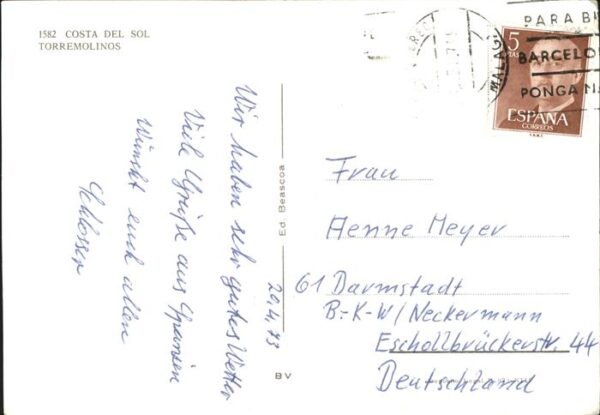 1582 COSTA DEL SOL
TORREMOLINOS
Wir haben sehr gutes Wetter
Viele Grüße aus Spanien
Wünscht euch allen
Schlosser
20.4.73
Ed. Beascoa
BV
MALAGA
PARA BI
BARCELO
PONGA
5
PTAS
ESPAÑA
CORREOS
Frau
Aenne Meyer
61 Darmstadt
B.-K-W/Neckermann
Eschollbrückerstr. 44
Deutschland